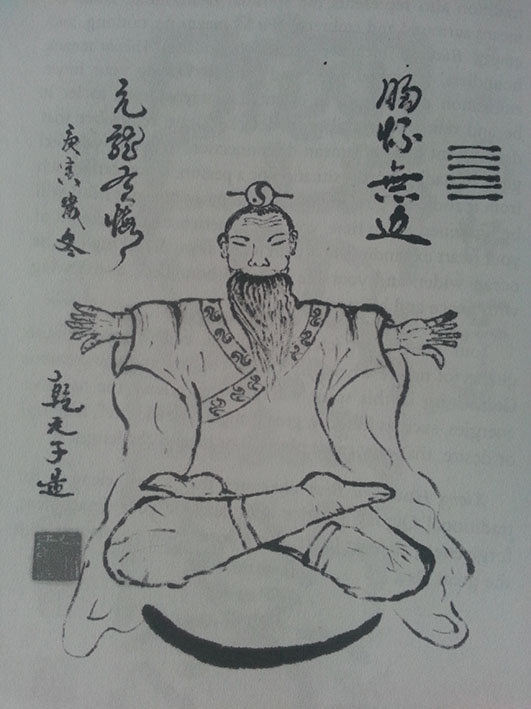 胸怀無边
亢龍有悔
庚寅歲冬
乾元子